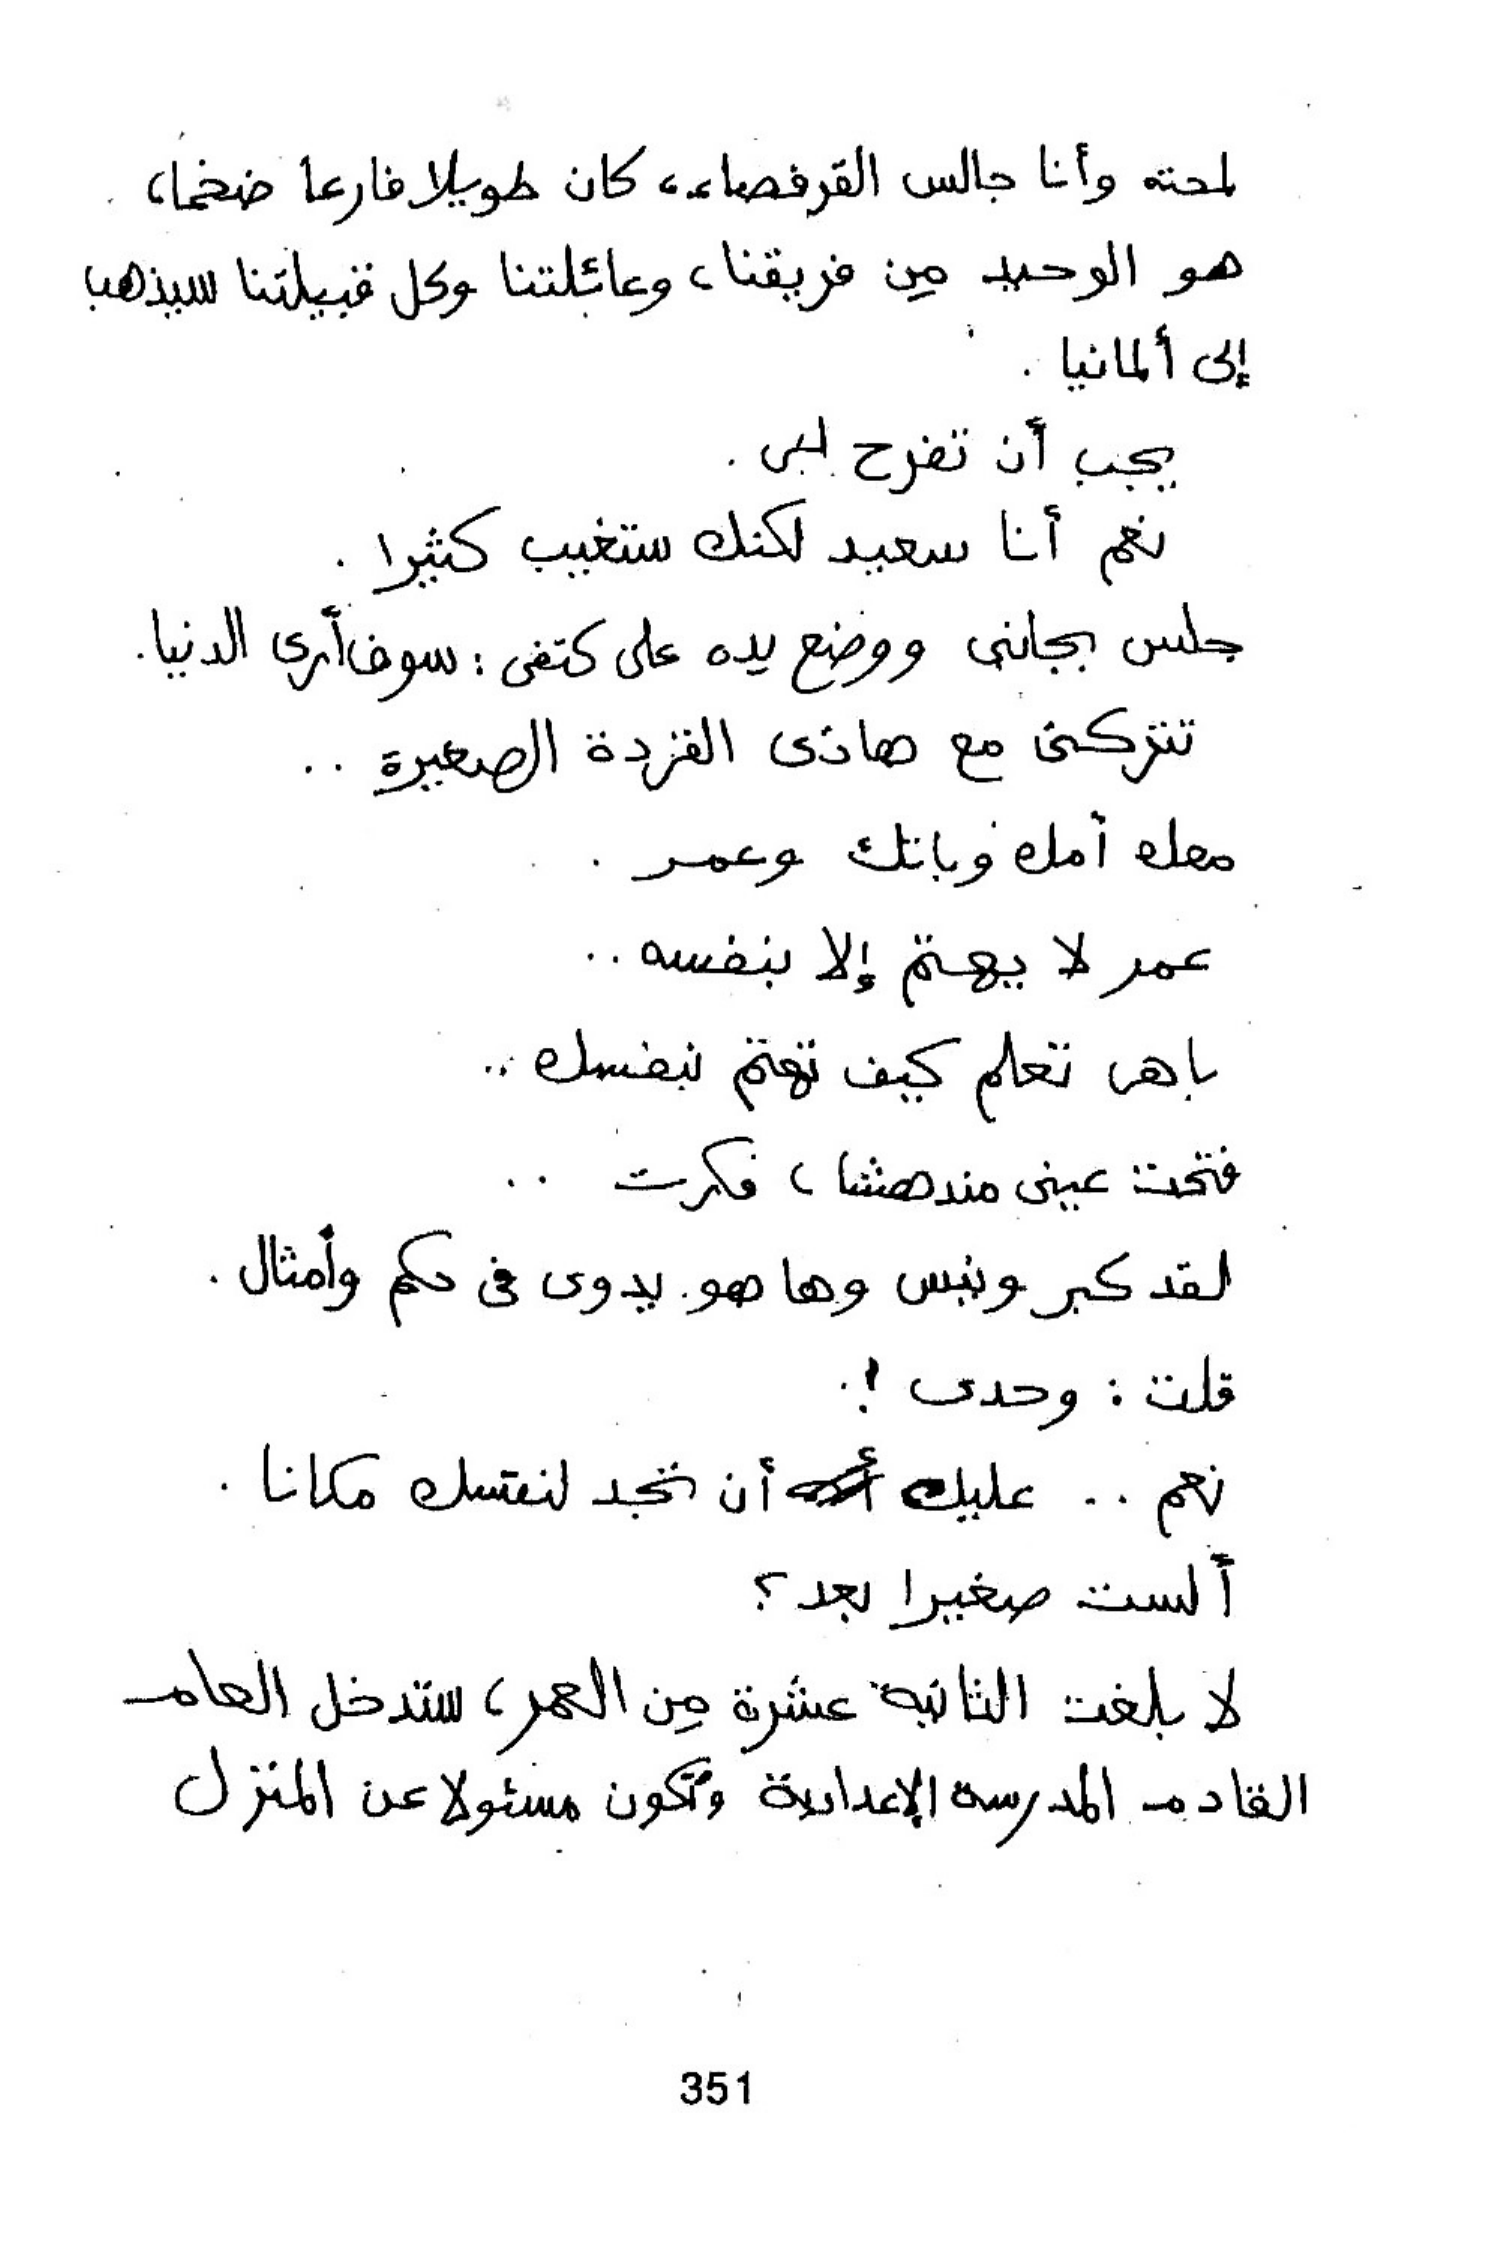 لمحته وأنا جالس القرفصاء، كان طويلا فارعا ضخما،
هو الوحيد مِن فريقنا، وعائلتنا وكل قبيلتنا سيذهب
إلى ألمانيا .
يجب أن تفرح .
نعم أنا سعيد لكنك ستغيب كثيرا .
جلس بجانبى ووضع يده على كتفى : سوف أرى الدنيا .
تتركنى مع هاذى القردة الصغيرة ..
معك أمك وباتك وعمر .
عمر لا يهتم إلا بنفسه ..
باهى تعلم كيف تهتم بنفسك ..
فتحت عينى مندهشا، فكرت ..
لقد كبر ونبس وها هو يدوى فى حكم وأمثال .
قلت : وحدى !.
نعم .. عليك أن تجد لنفسك مكانا .
ألست صغيرا بعد ؟
لا بلغت الثانية عشرة مِن العمر، ستدخل العام
القادم المدرسة الإعدادية وتكون مسئولا عن المنزل
351